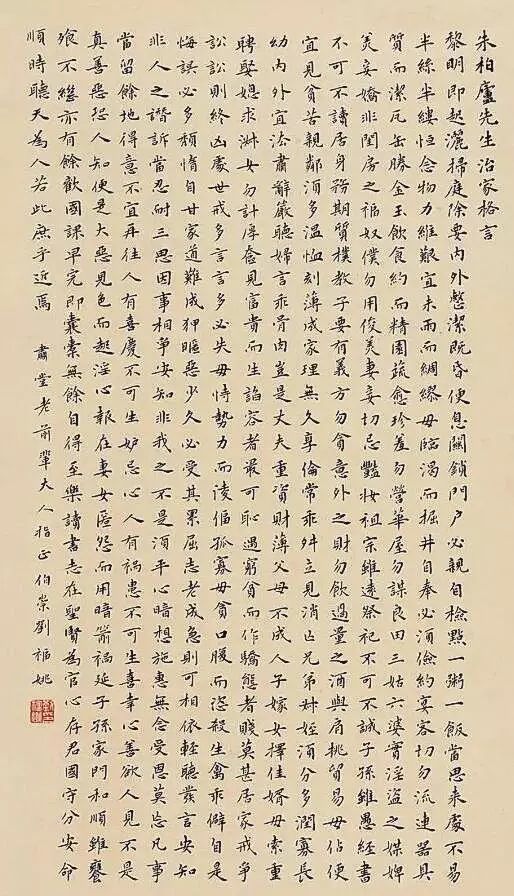 朱柏廬先生治家格言
黎明即起灑掃庭除要內外整潔既昏便息關鎖門戶必親自檢點一粥一飯當思來處不易
半絲半縷恆念物力維艱宜未雨而綢繆毋臨渴而掘井自奉必須儉約宴客切勿流連器具
質而潔瓦缶勝金玉飲食約而精園蔬愈珍羞勿營華屋勿謀良田三姑六婆實淫盜之媒婢
美妾嬌非閨房之福奴僕勿用俊美妻妾切忌豔妝祖宗雖遠祭祀不可不誠子孫雖愚經書
不可不讀居身務期質樸教子要有義方勿貪意外之財勿飲過量之酒與肩挑貿易毋佔便
宜見貧苦親鄰須多溫恤刻薄成家理無久享倫常乖舛立見消亡兄弟叔姪須分多潤寡長
幼內外宜法肅辭嚴聽婦言乖骨肉豈是丈夫重資財薄父母不成人子嫁女擇佳婿毋索重
聘娶媳求淑女勿計厚奩見富貴而生諂容者最可恥遇窮貧而作驕態者賤莫甚居家戒爭
訟訟則終凶處世戒多言言多必失毋恃勢力而凌偪孤寡毋貪口腹而恣殺生禽乖僻自是
悔誤必多頹惰自甘家道難成狎暱惡少久必受其累屈志老成急則可相依輕聽發言安知
非人之譖訴當忍耐三思因事相爭安知非我之不是須平心暗想施惠無念受恩莫忘凡事
當留餘地得意不宜再往人有喜慶不可生妒忌心人有禍患不可生喜幸心善欲人見不是
真善惡恐人知便是大惡見色而起淫心報在妻女匿怨而用暗箭禍延子孫家門和順雖饔
飧不繼亦有餘歡國課早完即囊橐無餘自得至樂讀書志在聖賢為官心存君國守分安命
順時聽天為人若此庶乎近焉 肅堂老前輩大人指正 伯崇劉福姚